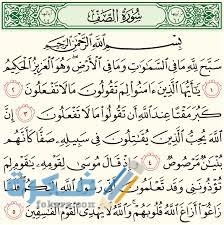 سُورَةُ الصَّفِّ
بِسْمِ اللَّهِ الرَّحْمَٰنِ الرَّحِيمِ
سَبَّحَ لِلَّهِ مَا فِي السَّمَٰوَٰتِ وَمَا فِي الْأَرْضِ وَهُوَ الْعَزِيزُ الْحَكِيمُ
١ يَٰٓأَيُّهَا الَّذِينَ ءَامَنُوا لِمَ تَقُولُونَ مَا لَا تَفْعَلُونَ ٢
كَبُرَ مَقْتًا عِندَ اللَّهِ أَن تَقُولُوا مَا لَا تَفْعَلُونَ ٣ إِنَّ
اللَّهَ يُحِبُّ الَّذِينَ يُقَٰتِلُونَ فِي سَبِيلِهِ صَفًّا كَأَنَّهُم
بُنْيَٰنٌ مَّرْصُوصٌ ٤ وَإِذْ قَالَ مُوسَىٰ لِقَوْمِهِ يَٰقَوْمِ لِمَ
تُؤْذُونَنِي وَقَد تَّعْلَمُونَ أَنِّي رَسُولُ اللَّهِ إِلَيْكُمْ فَلَمَّا
زَاغُوا أَزَاغَ اللَّهُ قُلُوبَهُمْ وَاللَّهُ لَا يَهْدِي الْقَوْمَ الْفَٰسِقِينَ ٥
فكرة